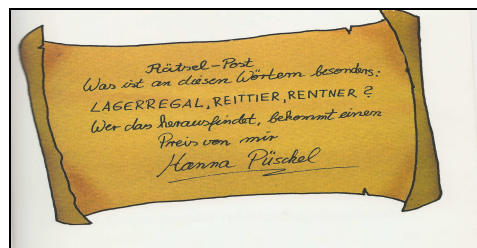 Rätsel-Post
Was ist an diesen Wörtern besonders:
LAGERREGAL, REITTIER, RENTNER?
Wer das herausfindet, bekommt einen
Preis von mir
Hanna Püschel